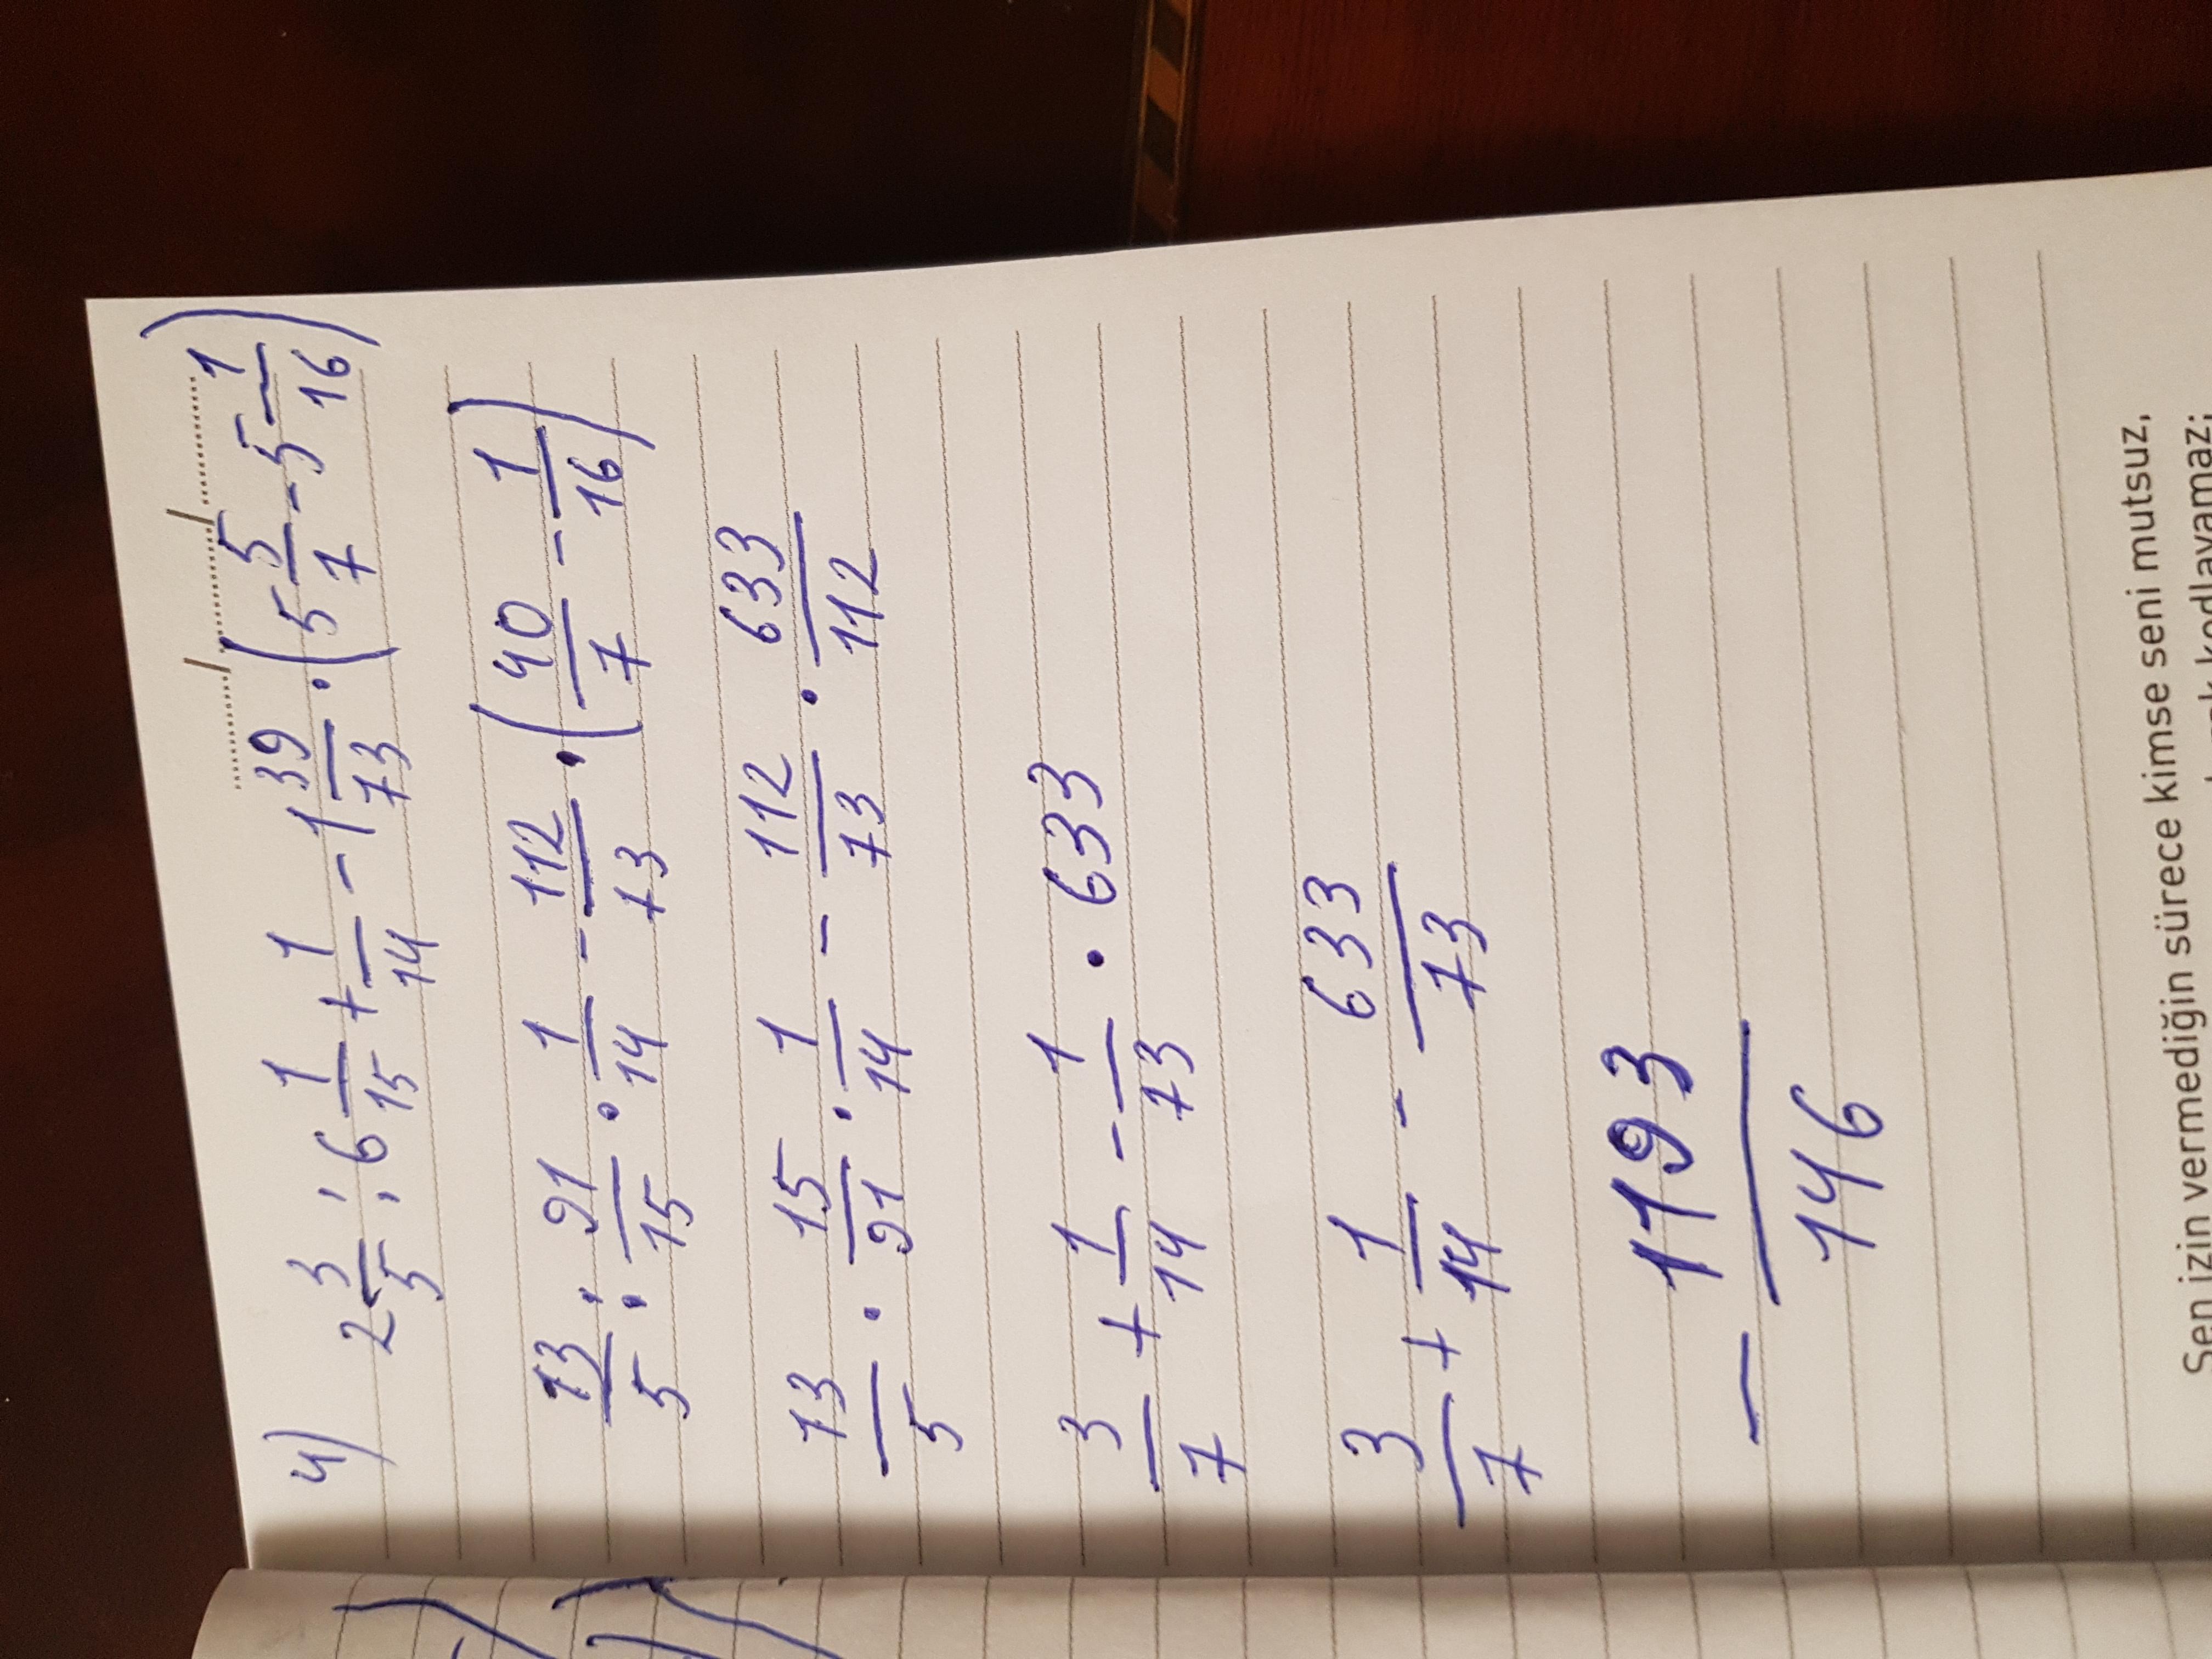 4) 2 3/5 : 6 1/15 + 1/14 - 1 39/73 · (5 5/7 - 5 1/16)
13/5 : 91/15 · 1/14 - 112/73 · (40/7 - 1/16)
13/5 · 15/91 · 1/14 - 112/73 · 633/112
3/7 + 1/14 - 1/73 · 633
3/7 + 1/14 - 633/73
- 1193/146
Sen izin vermediğin sürece kimse seni mutsuz,
kodlayamaz;